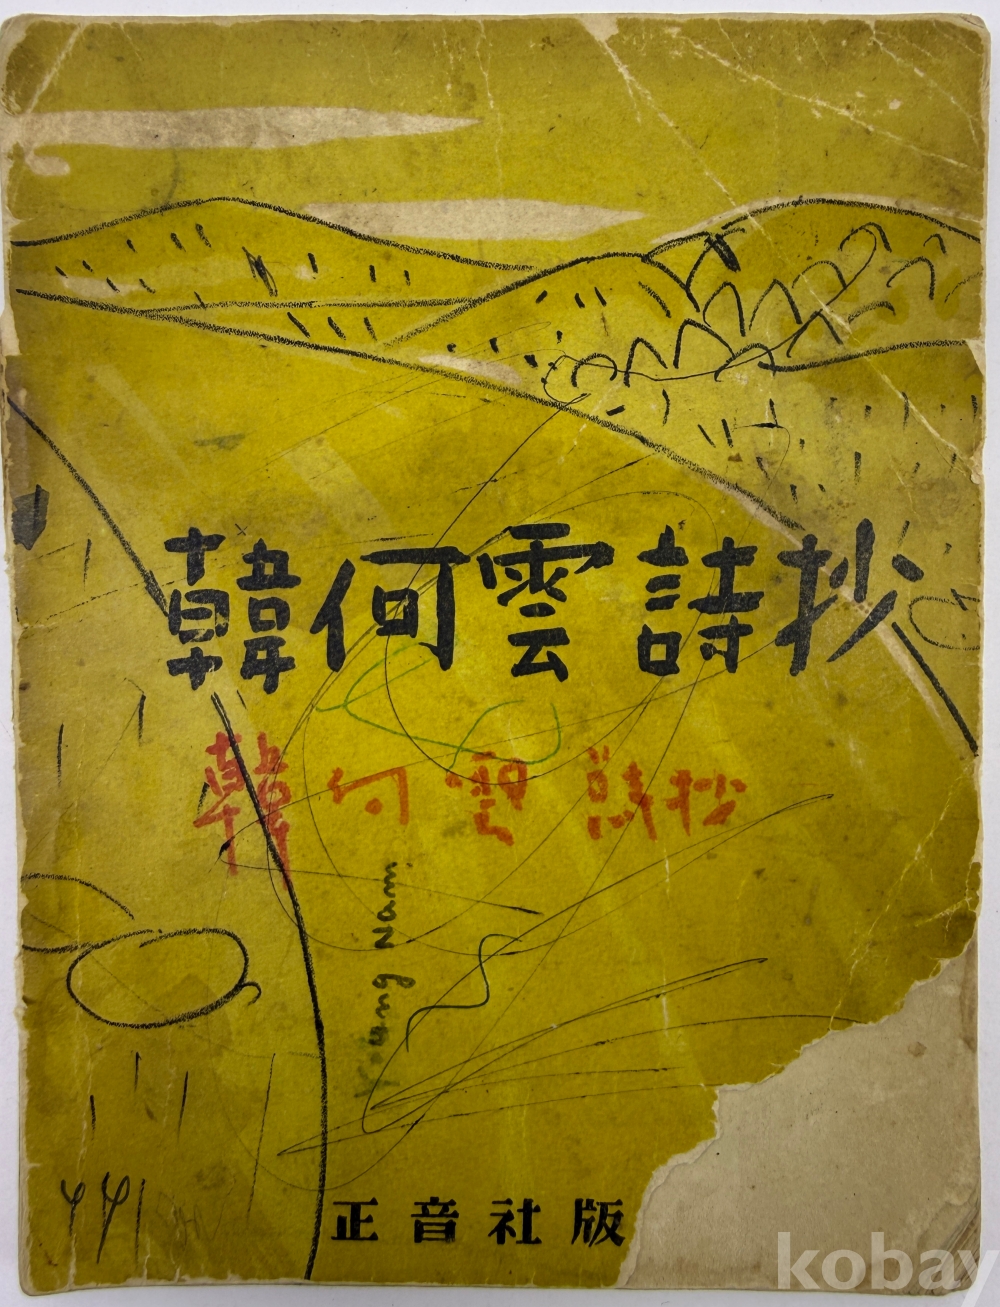 韓何雲詩抄
韓何雲詩抄
Young Nam
正音社版
kobay